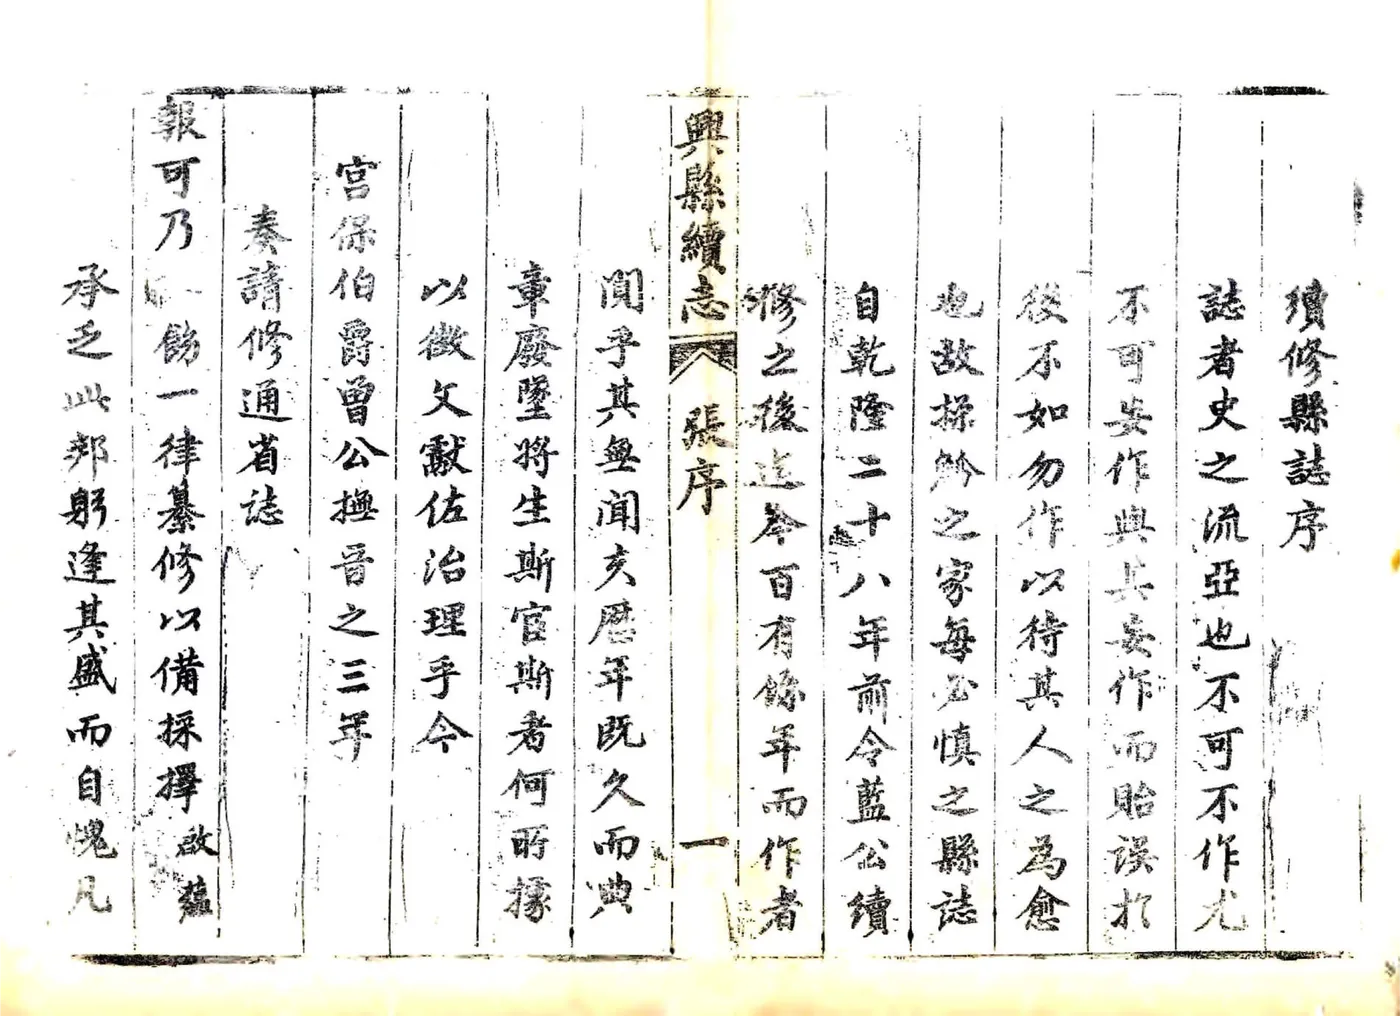 續修縣誌序
誌者史之流亞也不可不作尤
不可妄作與其妄作而貽誤於
後不如勿作以待其人之為愈
也故操觚之家每必慎之縣誌
自乾隆二十八年前令藍公續
修之後迄今百有餘年而作者
興縣續志
張序
一
閴乎其無聞亥歷年既久而典
章廢墜將生斯官斯者何所據
以徵文獻佐治理乎今
宮保伯爵曾公撫晉之三年
奏請修通省誌
報可乃 飭一律纂修以備採擇啟蘊
承乏此邦躬逢其盛而自愧凡